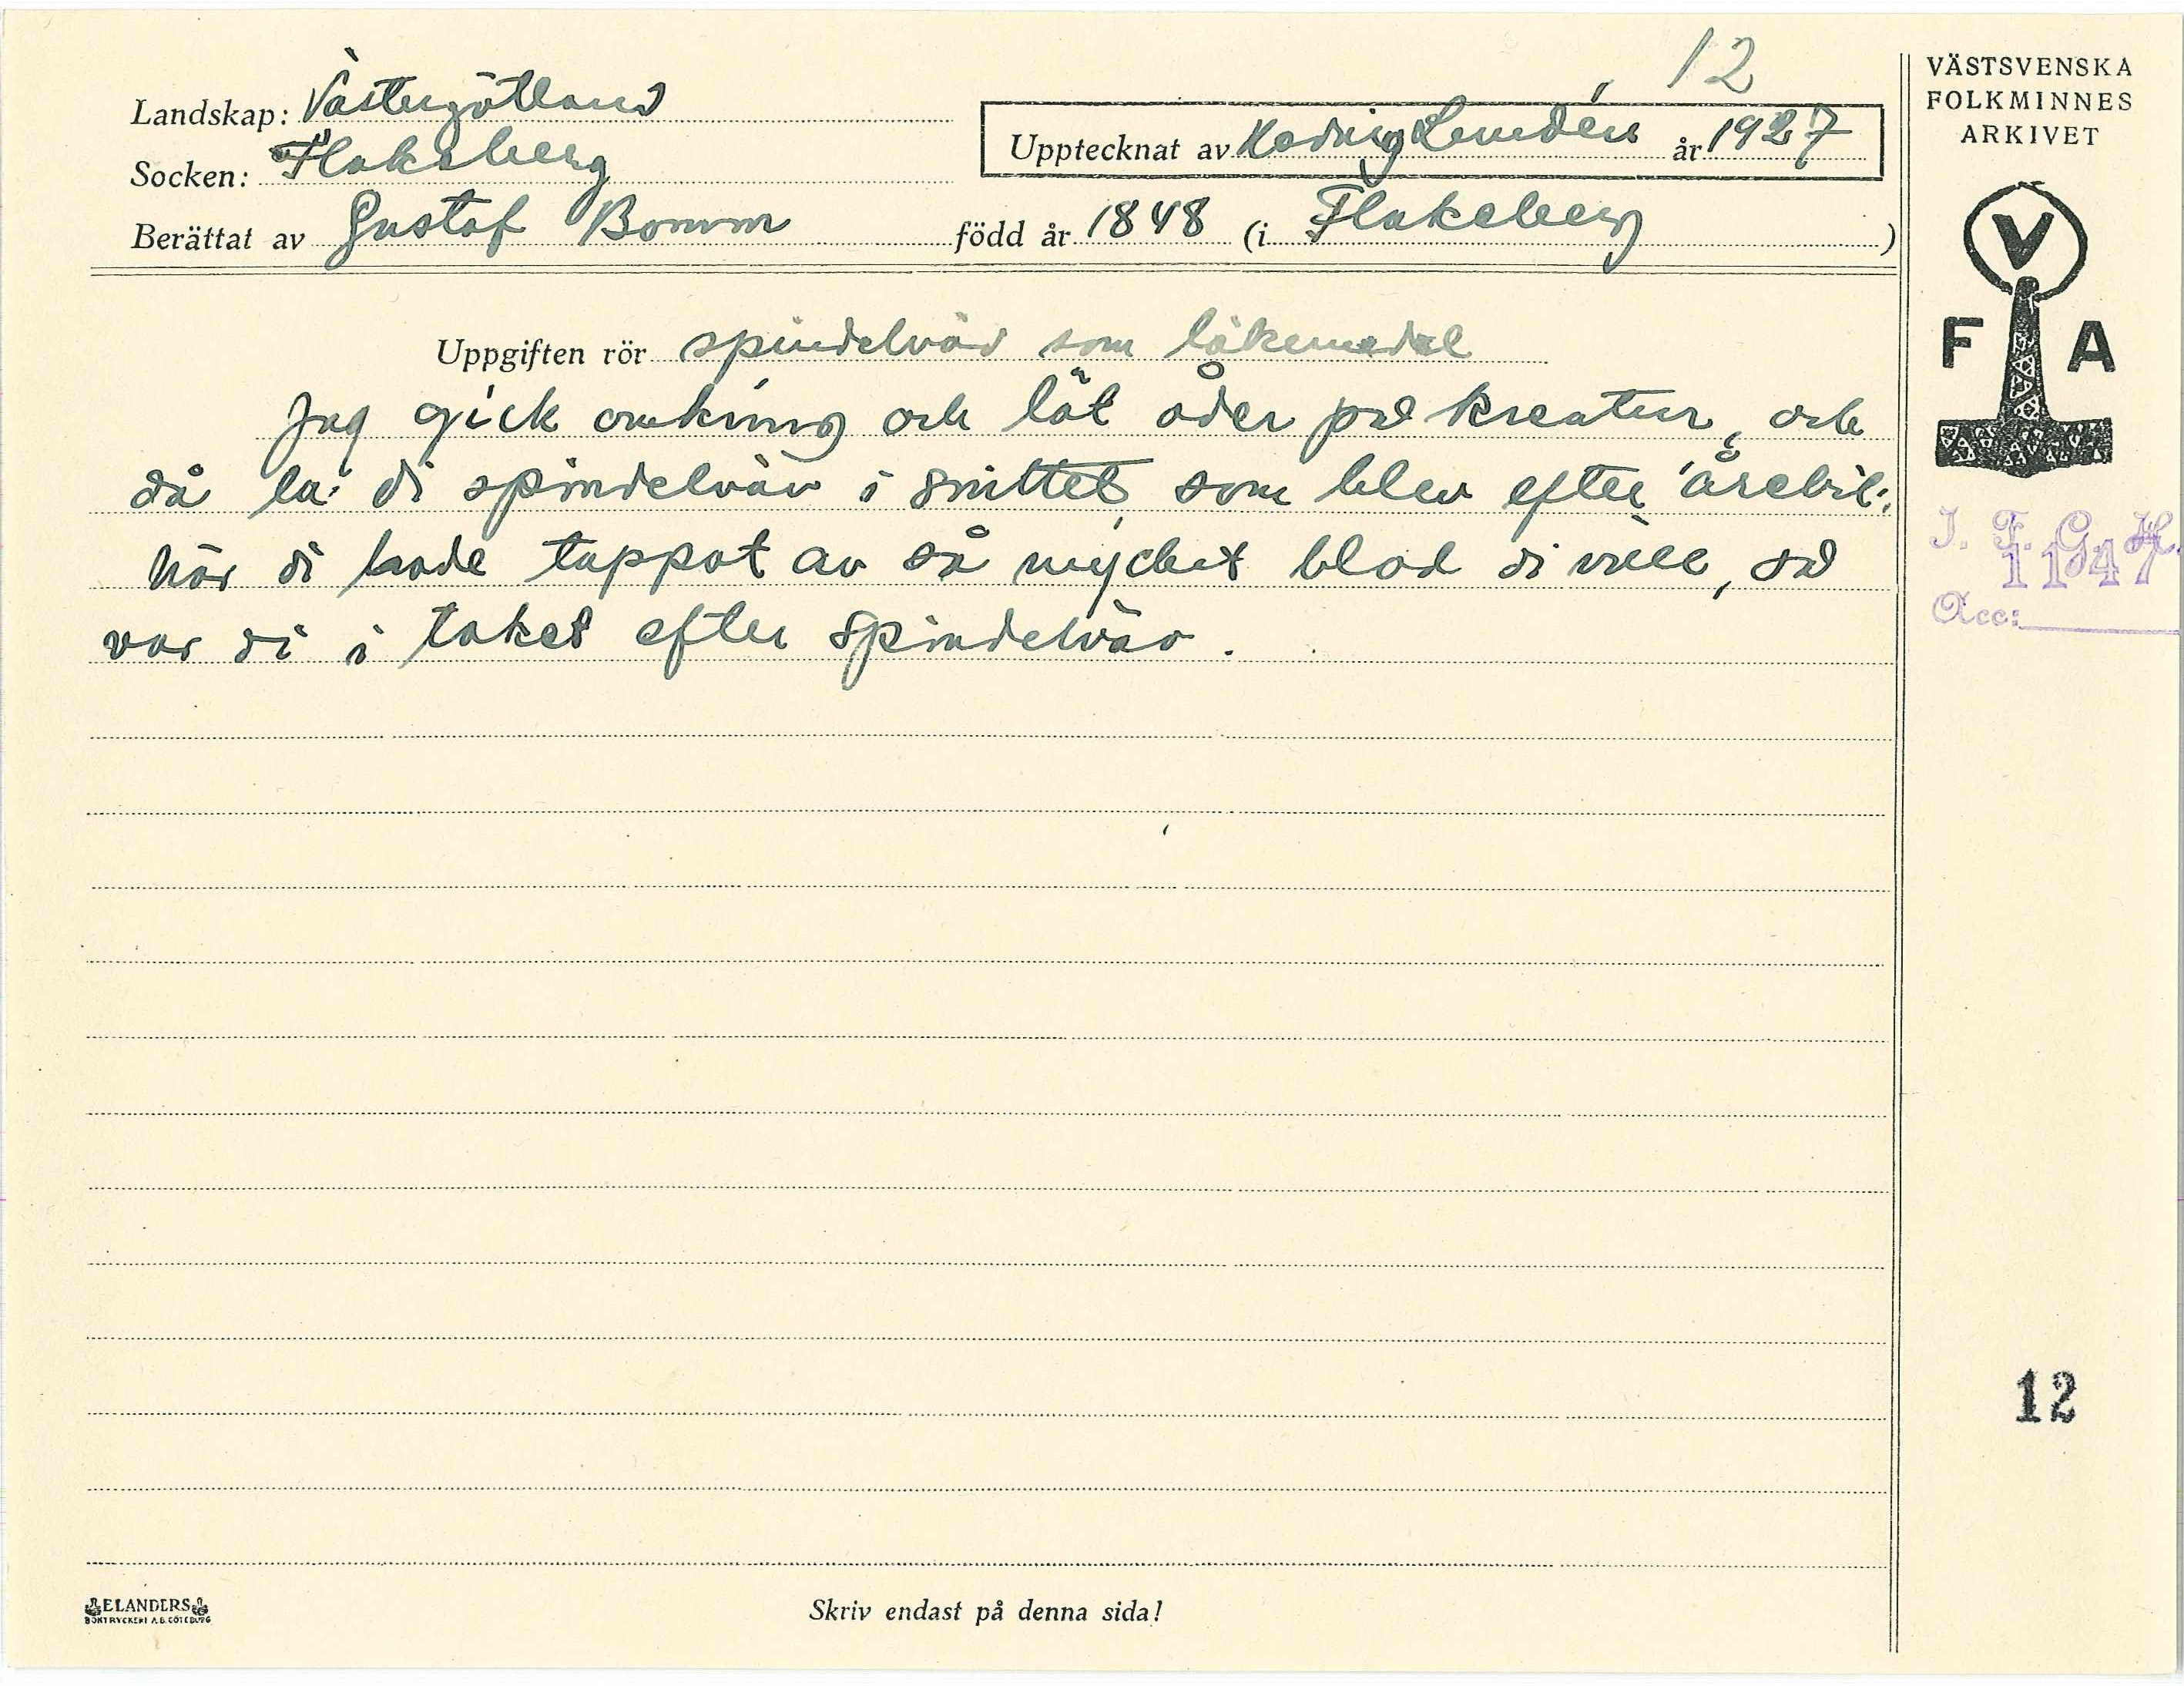 12
Landskap: Västergötland
Socken: Flakeberg
Upptecknat av Hedvig Lundén år 1927
Berättat av Gustaf Bomm född år 1848 (i Flakeberg)
Uppgiften rör spindelväv som läkemedel
Jag gick omkring och lät åder på kreatur, och
då la' di spindelväv i snittet, som blev efter
När di hade tappat av så mycket blod di ville, så
var di i taket efter spindelväv.
ELANDERS
BOKTRYCKERI A.B. GÖTEBORG
Skriv endast på denna sida!
VÄSTSVENSKA
FOLKMINNES
ARKIVET
V
F A
I. F. G. H.
1147
Acc:
12